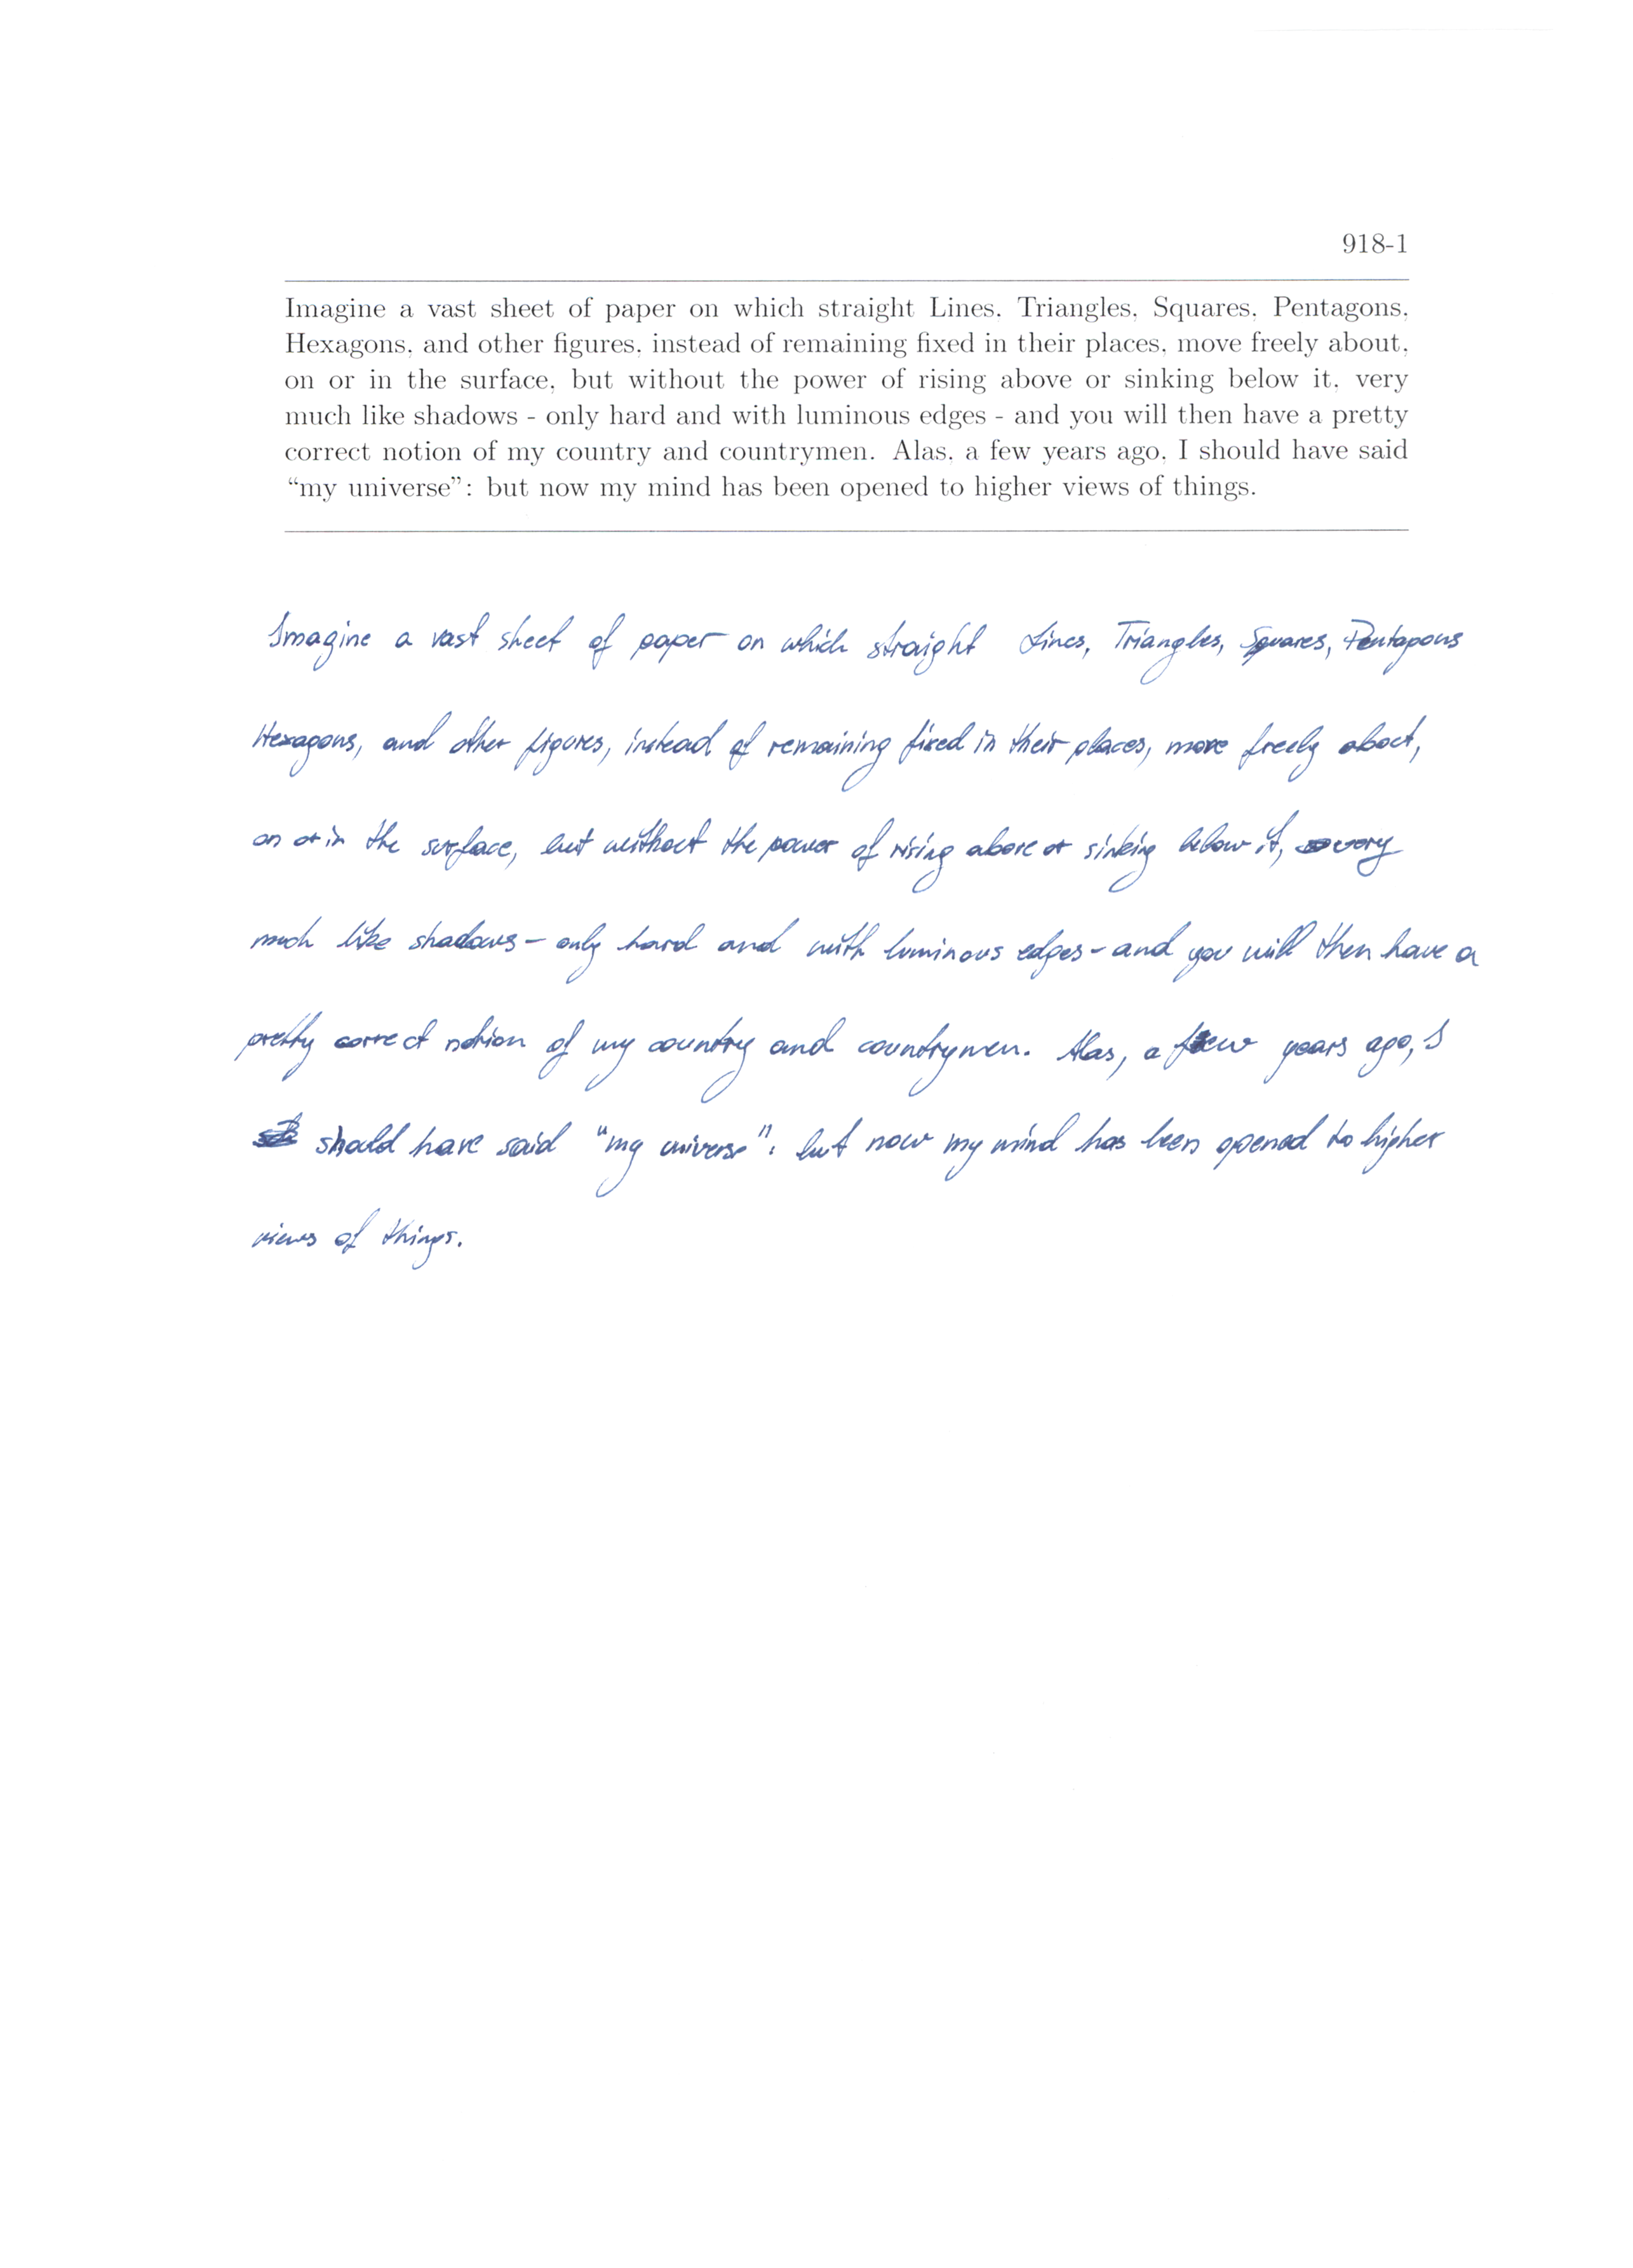 918-1
Imagine a vast sheet of paper on which straight Lines, Triangles, Squares, Pentagons,
Hexagons, and other figures, instead of remaining fixed in their places, move freely about,
on or in the surface, but without the power of rising above or sinking below it, very
much like shadows - only hard and with luminous edges - and you will then have a pretty
correct notion of my country and countrymen. Alas, a few years ago, I should have said
“my universe”: but now my mind has been opened to higher views of things.
Imagine a vast sheet of paper on which straight Lines, Triangles, Squares, Pentagons
Hexagons, and other figures, instead of remaining fixed in their places, move freely about,
on or in the surface, but without the power of rising above or sinking below it, very
much like shadows - only hard and with luminous edges - and you will then have a
pretty correct notion of my country and countrymen. Alas, a few years ago, I
should have said "my universe": but now my mind has been opened to higher
views of things.